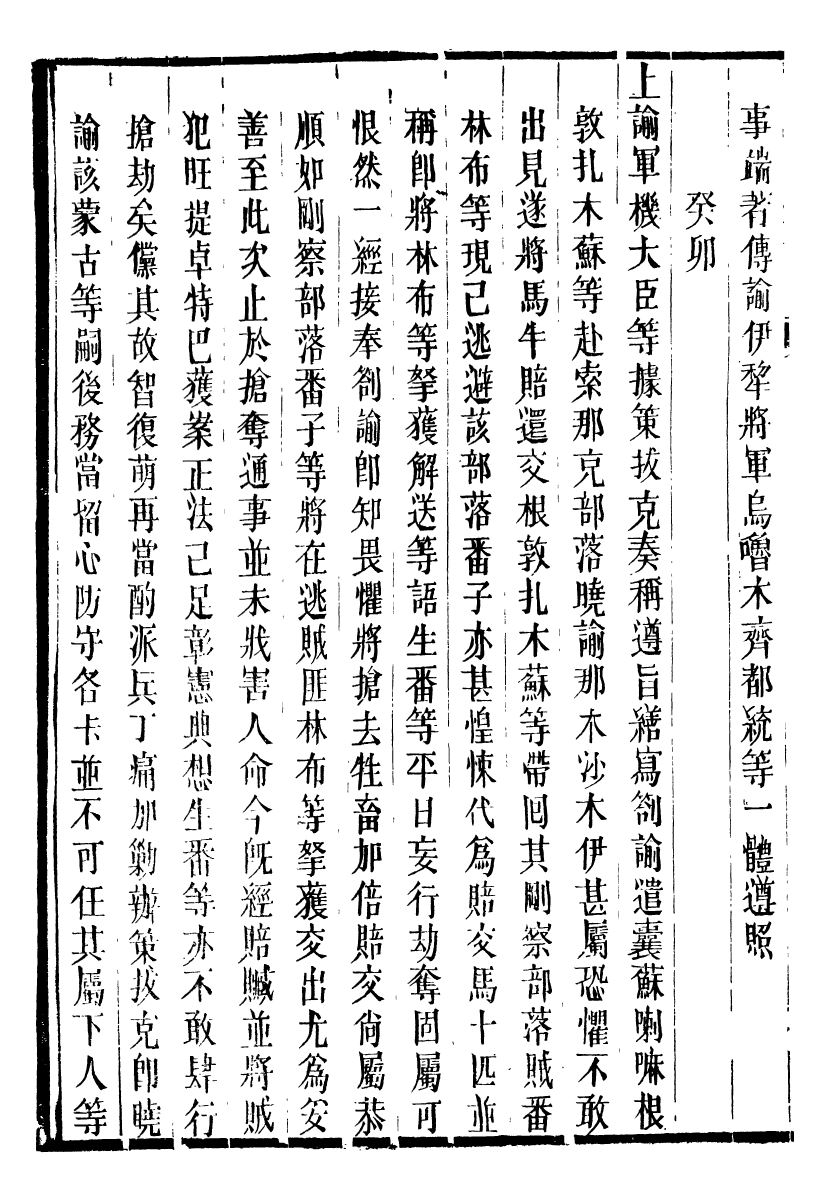 事端著傳諭伊犂將軍烏嚕木齊都統等一體遵照
癸卯
上諭軍機大臣等據策拔克奏稱遵旨繕寫劄諭遣囊蘇喇嘛根
敦扎木蘇等赴索那克部落曉諭那木沙木伊甚屬恐懼不敢
出見遂將馬牛賠還交根敦扎木蘇等帶回其剛察部落賊番
林布等現已逃避該部落番子亦甚惶悚代爲賠交馬十匹並
稱卽將林布等拏獲解送等語生番等平日妄行劫奪固屬可
恨然一經接奉劄諭卽知畏懼將搶去牲畜加倍賠交尙屬恭
順如剛察部落番子等將在逃賊匪林布等拏獲交出尤爲妥
善至此次止於搶奪通事並未戕害人命今旣經賠贓並將賊
犯旺提卓特巴獲案正法已足彰憲典想生番等亦不敢肆行
搶劫矣儻其故智復萌再當酌派兵丁痛加勦辦策拔克卽曉
諭該蒙古等嗣後務當畱心防守各卡並不可任其屬下人等